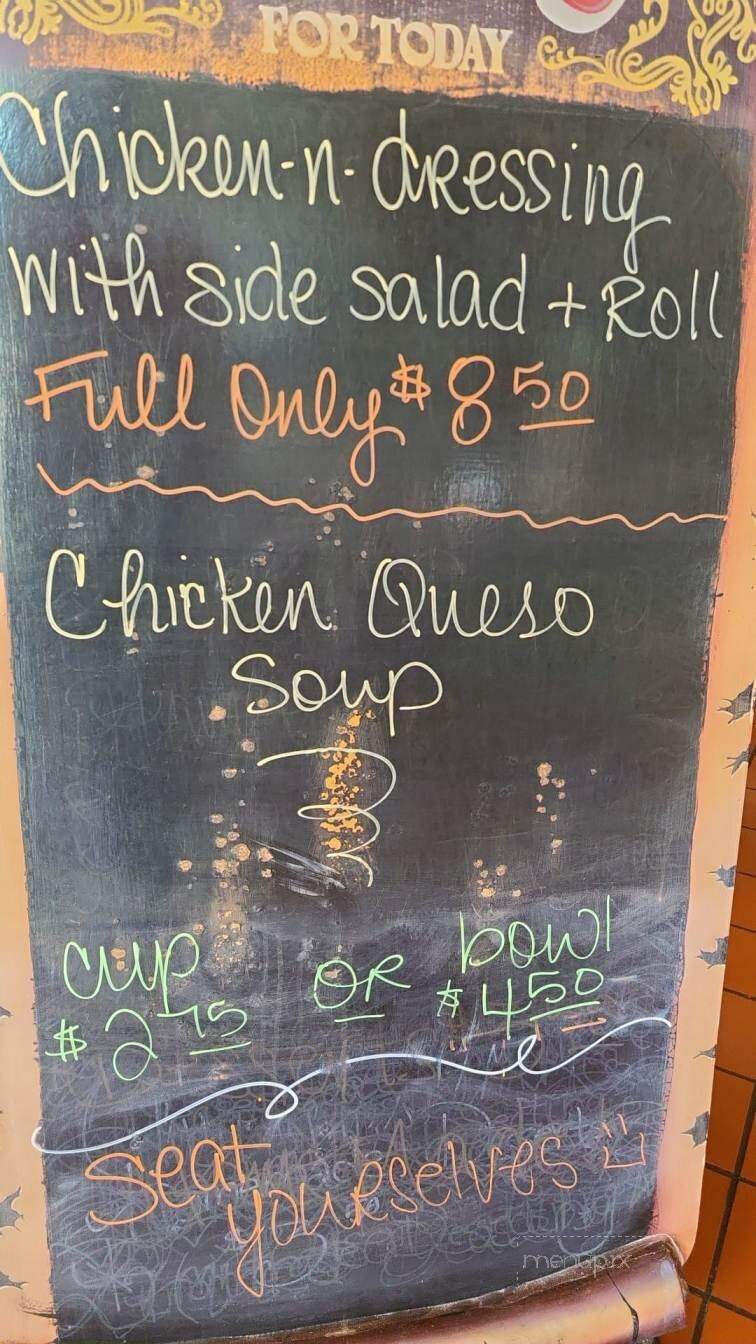 FOR TODAY
Chicken-n-dressing
with side salad + Roll
Full Only $8 50
Chicken Queso
Soup
cup OR bowl
$2 75 $4 50
Seat
yourselves
menupix